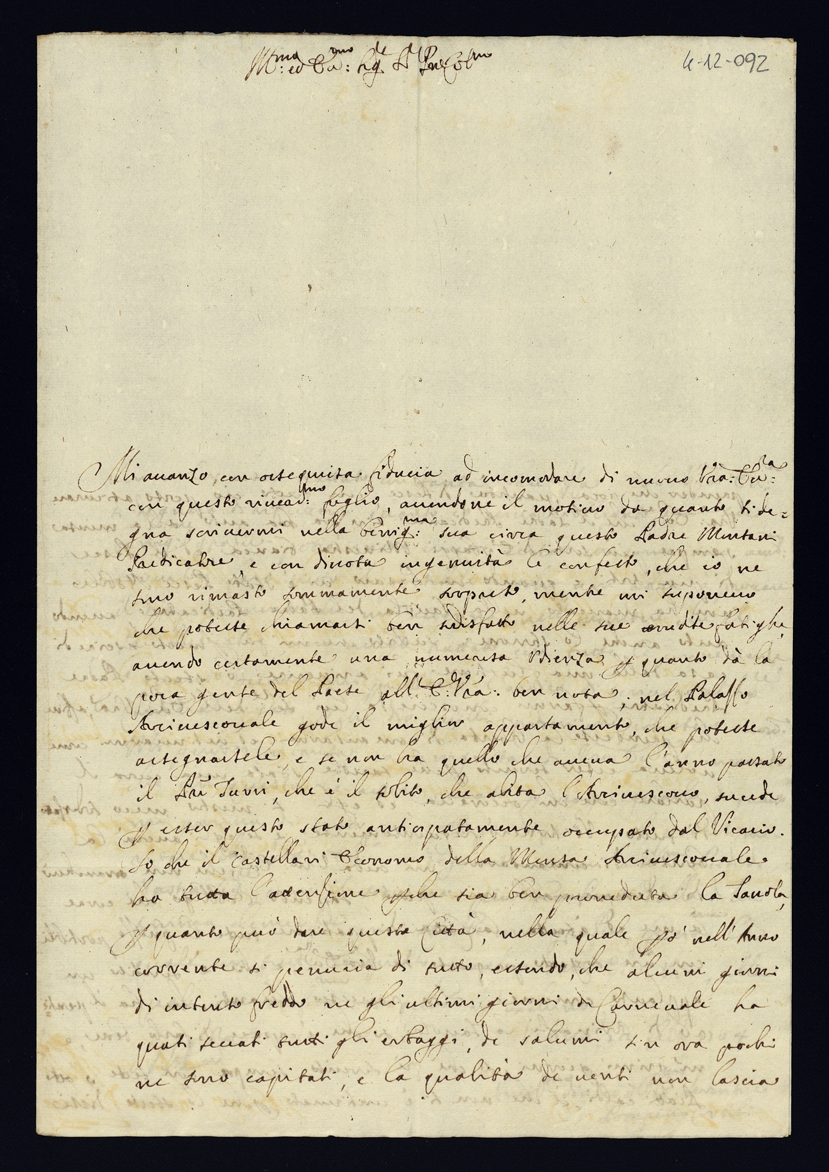 4-12-092
Ill:mo ed Ecc:mo Sig:re Sig:r Pne Col:mo
Mi auanzo con ossequiosa fiducia ad incomodare di nuouo Vra: Ecc:za
con questo riuerend:mo foglio, auendone il motiuo da quanto si de=
gna scriuermi nella benig:ma sua circa questo Padre Montani
Predicatore, e con diuota ingenuità le confesso, che io ne
sono rimasto sommamente sorpreso, mentre mi suponeuo
che potesse chiamarsi ben sodisfatto nelle sue erudite fatighe,
auendo certamente una numerosa Vdienza p quanto dà la
poca gente del Paese all: E: Vra: ben nota; nel Palazzo
Arciuescouale gode il miglior appartamento, che potesse
assegnarsele, e se non ha quello che aueua l'anno passato
il Prē Turri, che è il solito, che abita l'Arciuescouo, succede
p esser questo stato anticipatamente occupato dal Vicario.
So che il Castellani Economo della Mensa Arciuescouale
ha tutta l'attenzione pche sia ben proueduta la Tauola,
p quanto può dare questa Città, nella quale però nell'Anno
corrente si penuria di tutto, essendo, che alcuni giorni
di intenso freddo ne gli ultimi giorni di Carneuale ha
quasi seccati tutti gli erbaggi, de salumi sin ora pochi
ne sono capitati, e la qualità de uenti non lascia